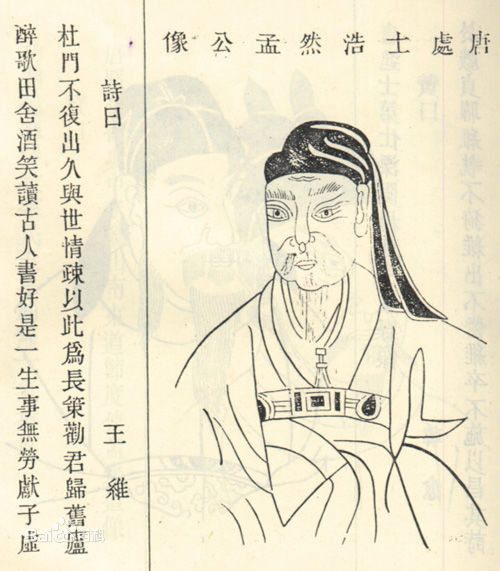 唐處士浩然孟公像
詩曰 王維
杜門不復出久與世情疎以此爲長策勸君歸舊廬
醉歌田舍酒笑讀古人書好是一生事無勞獻子虛
Baidu百科